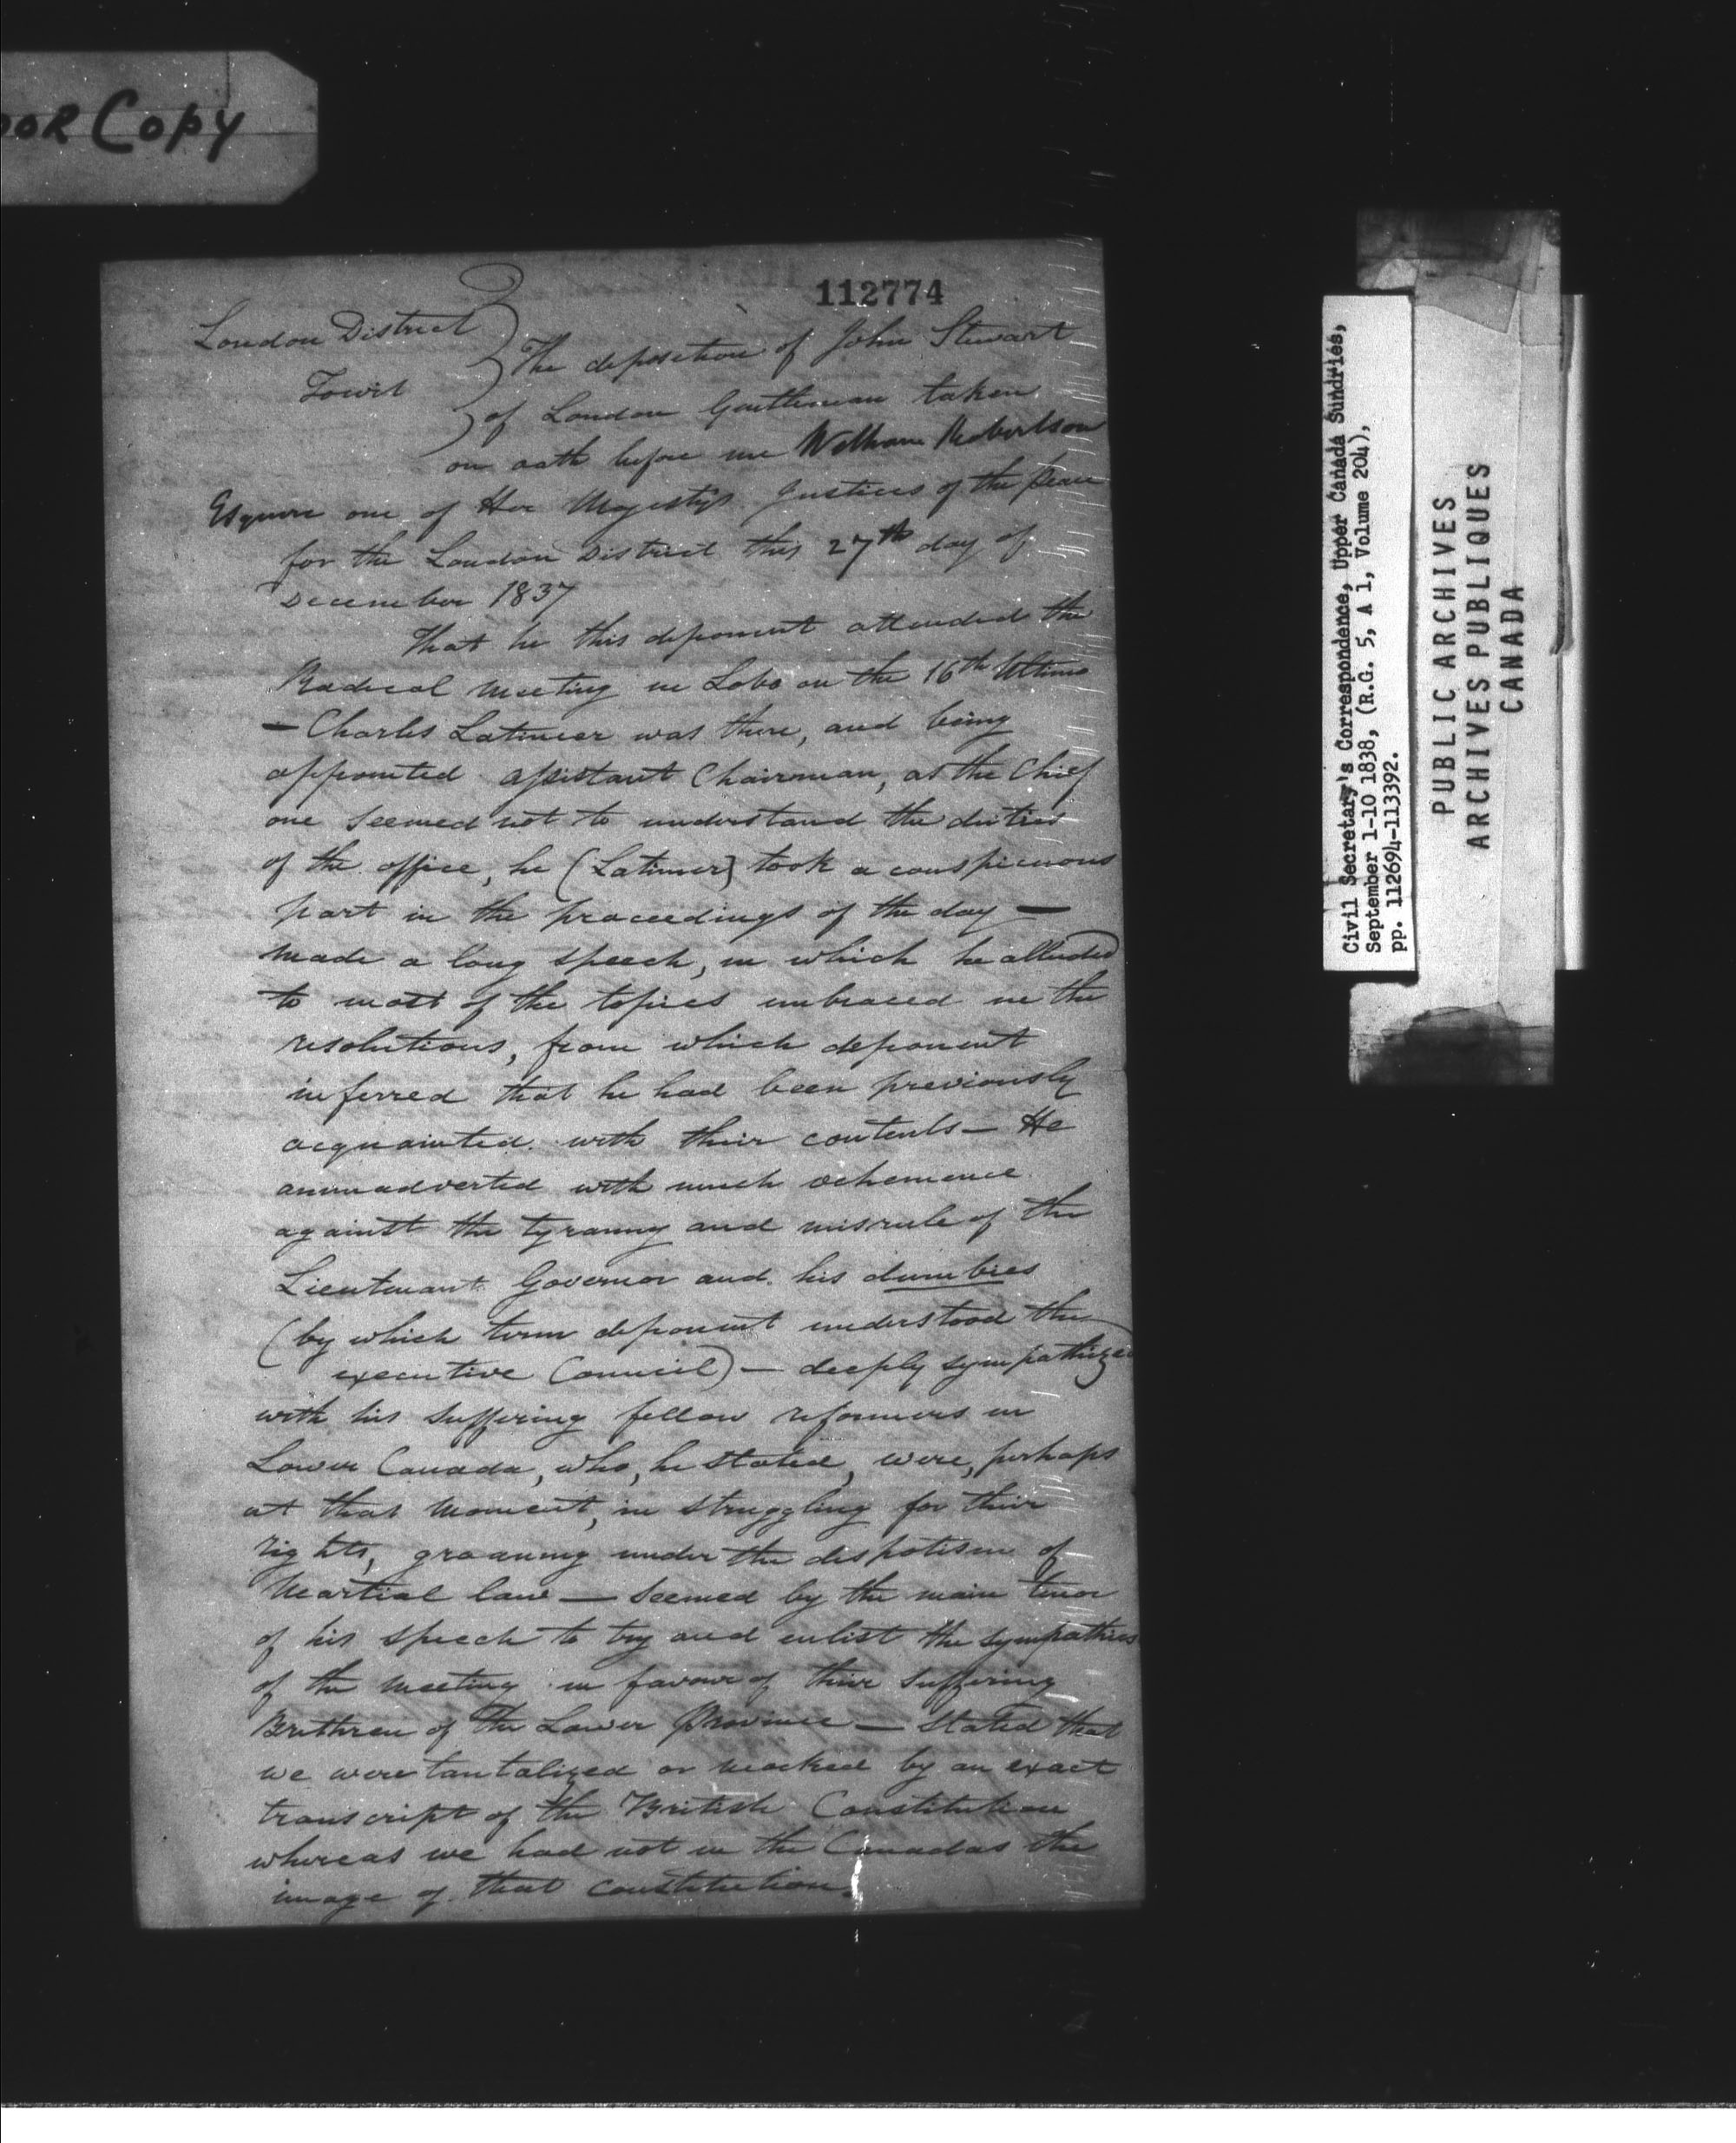 OOR Copy
112774
London District
Towit
The deposition of John Stewart
of London Gentleman taken
on oath before me William Robertson
Esquire one of Her Majestys Justices of the Peace
for the London District this 27th day of
December 1837
That he this deponent attended the
Radical meeting in Lobo on the 16th Ultimo
— Charles Latimer was there, and being
appointed assistant Chairman, as the Chief
one seemed not to understand the duties
of the office, he (Latimer) took a conspicuous
part in the proceedings of the day —
made a long speech, in which he alluded
to most of the topics embraced in the
resolutions, from which deponent
inferred that he had been previously
acquainted with their contents — He
animadverted with much vehemence
against the tyranny and misrule of the
Lieutenant Governor and his dumbies
(by which term deponent understood the
executive Council) — deeply sympathized
with his suffering fellow reformers in
Lower Canada, who, he stated, were, perhaps
at that moment, in struggling for their
rights, groaning under the despotism of
Martial law — seemed by the main tenor
of his speech to try and enlist the sympathies
of the meeting in favour of their suffering
Brethren of the Lower Province — stated that
we were tantalized or mocked by an exact
transcript of the British Constitution
whereas we had not in the Canadas the
image of that constitution.
Civil Secretary's Correspondence, Upper Canada Sundries,
September 1-10 1838, (R.G. 5, A 1, Volume 204),
pp. 112694-113392.
PUBLIC ARCHIVES
ARCHIVES PUBLIQUES
CANADA